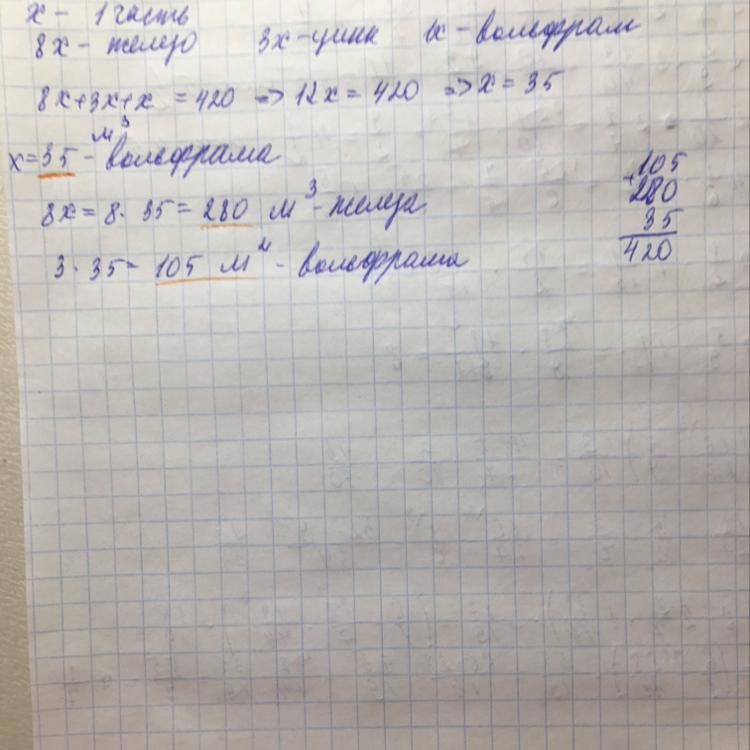 x - 1 часть
8x - железо 3x - цинк 1x - вольфрам
8x+3x+x = 420 => 12x = 420 => x = 35
x = 35 м³ - вольфрама
8x = 8 · 35 = 280 м³ - железа
3 · 35 = 105 м - вольфрама
105
+ 280
35
420